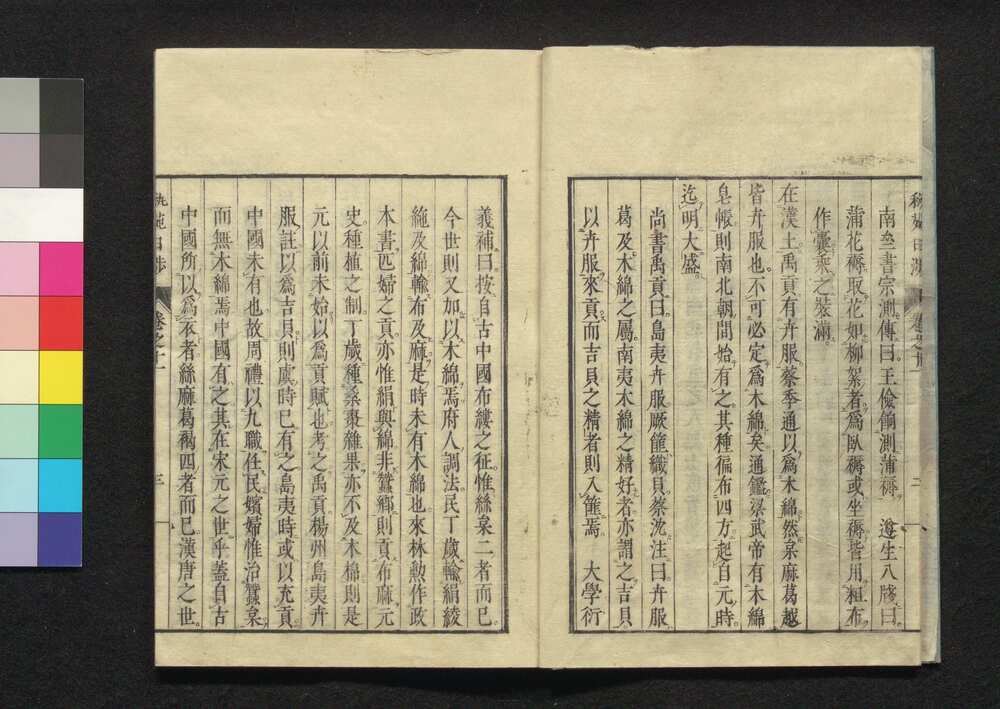 南史書宗測傳曰王儉餉測蒲褥　遵生八牋曰
蒲花褥取花如柳絮者爲臥褥或坐褥皆用粗布
作囊乘之裝滿
在漢土禹貢有卉服蔡季通以爲木綿然枲麻葛越
皆卉服也不可必定爲木綿矣通鑑梁武帝有木綿
皂帳則南北朝間始有之其種徧布四方起自元時
迄明大盛
尚書禹貢曰島夷卉服厥篚織貝蔡沈注曰卉服
葛及木綿之屬南夷木綿之精好者亦謂之吉貝
以卉服來貢而吉貝之精者則入篚焉　大學衍
二
義補曰按自古中國布縷之征惟絲枲二者而已
今世則又加以木綿焉府人調法民丁歲輸絹綾
絁及綿輸布及麻是時未有木綿也來林勲作政
本書匹婦之貢亦惟絹與綿非蠶鄉則貢布麻元
史種植之制丁歲種桑棗雜果亦不及木棉則是
元以前未始以爲貢賦也考之禹貢楊州島夷卉
服註以爲吉貝則虞時已有之島夷時或以充貢
中國未有也故周禮以九職任民嬪婦惟治蠶枲
而無木綿焉中國有之其在宋元之世乎蓋自古
中國所以爲衣者絲麻葛褐四者而已漢唐之世
卷之十一
三